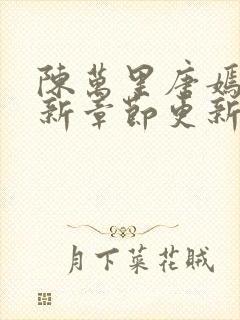 陳萬里唐嫣
新章節更新
月下菜花賊